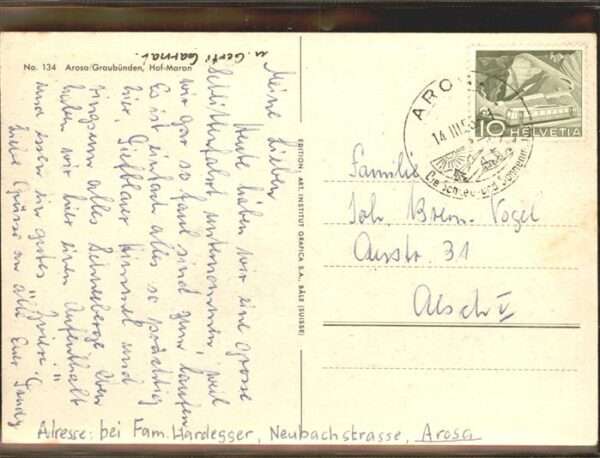 u. Gerti
No. 134 Arosa/Graubünden, Hof-Maran
Meine Lieben
Heute haben wir eine grosse
Schlittenfahrt unternommen, weil
wir gar so faul sind zum laufen
Es ist einfach alles so prächtig
hier. Tiefblauer Himmel und
ringsum alles Schneeberge. Eben
haben wir hier einen Aufenthalt
und essen ein gutes "
Liebe Grüsse an alle Euer
EDITION: ART. INSTITUT ORAFICA S.A., BÂLE (SUISSE)
AROSA
14 III 5
10 HELVETIA
Familie
Joh. Vogel
Aesch
Adresse: bei Fam. Hardegger, Neubachstrasse, Arosa